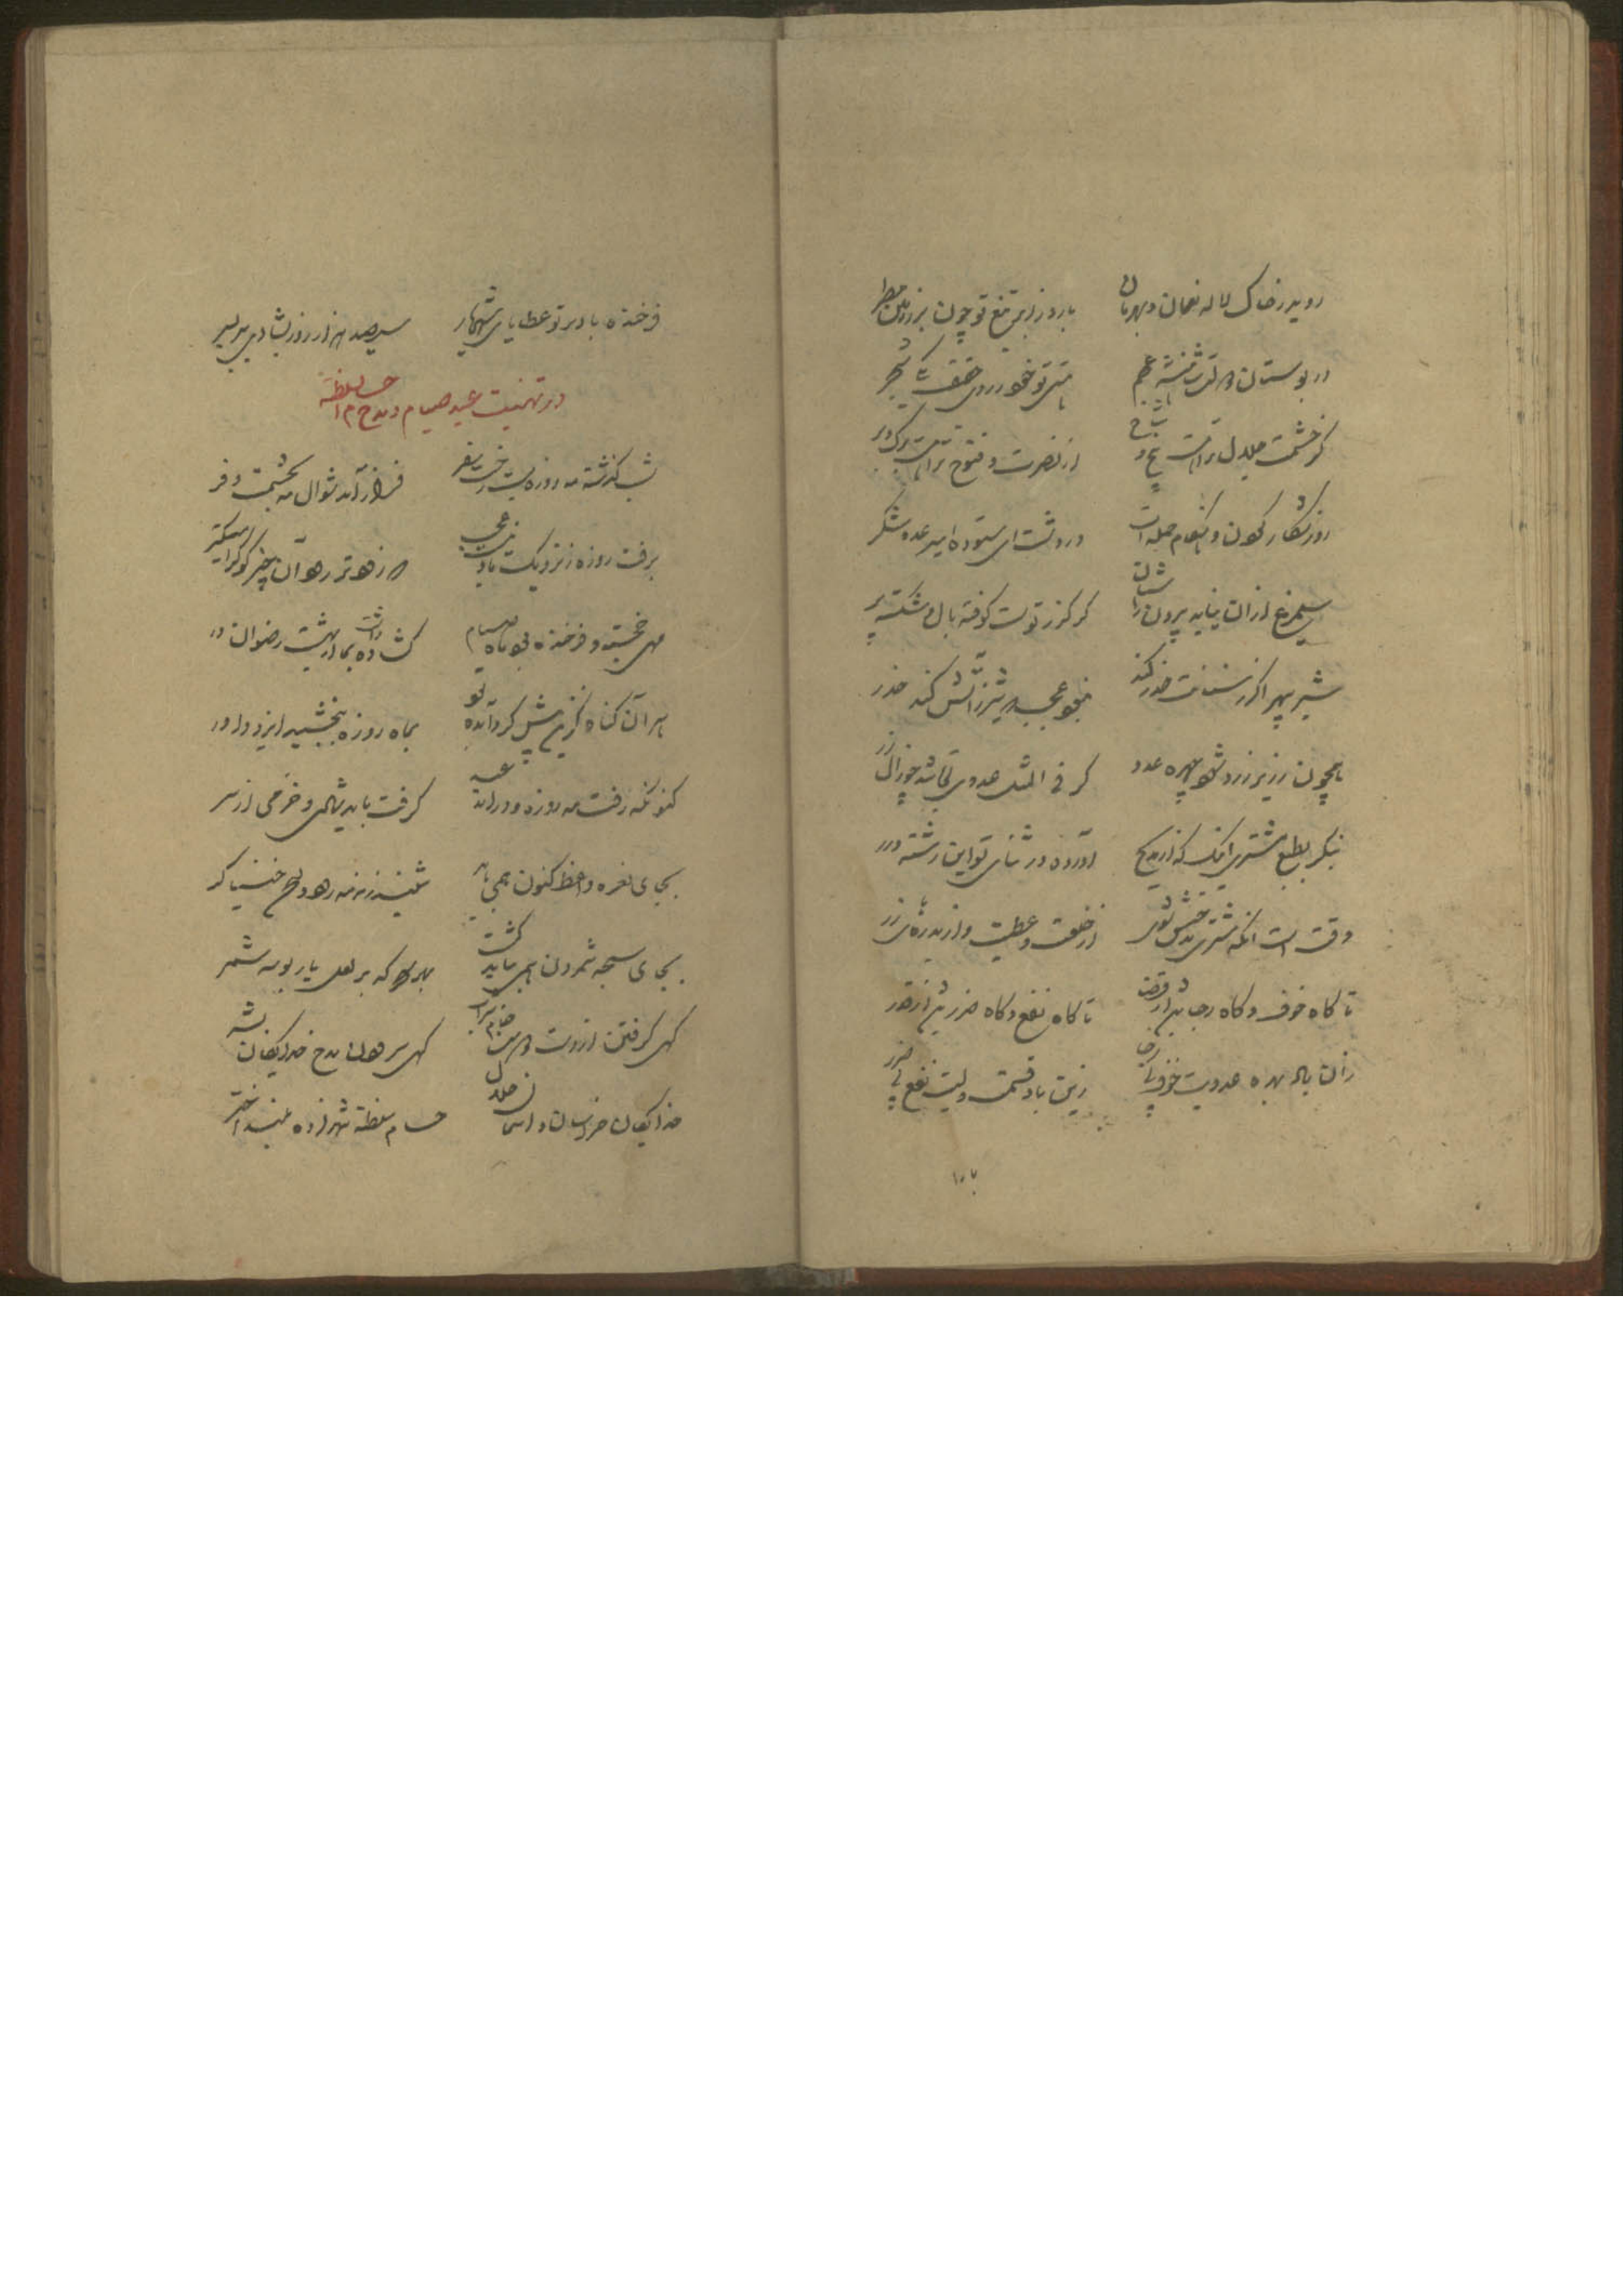 روید ز خاک لاله نعمان و بهرمان
بارد ز ابر تیغ تو چون بر زمین مطر
در بوستان
گر خشمت
از نصرت و فتوح تراست برگ و بر
روز شکار کهون و ضیغام جمله است
در دشت ای ستوده امیر عدو شکر
سیمرغ از آن نیاید بیرون ز آشیان
کز گرز تست کوفته بال و شکسته پر
شیر سپهر اگر ز سنانت حذر کند
نبود عجب که شیر ز آتش کند حذر
همچون زریر زرد شود چهره عدو
گر فی المثل عدوی تو باشد چو زال زر
بنگر بطبع مشتری اینک که از مدیح
آورده در ثنای تو این رشته درر
وقت است آنکه مشتری
از خلعت و عطیت و از بدره‌های زر
تا گاه خوف و گاه رجا باشد از قضا
تا گاه نفع و گاه ضرر باشد از قدر
زان باد بهره عدویت خوف بی رجا
زین باد قسمت ولیت نفع بی ضرر
فرخنده باد بر تو عطایای شهریار
سیصد هزار روز بشادی بری بسر
در تهنیت عید صیام و مدح حسام السلطنه
شب گذشته مه روزه بست رخت سفر
فراز آمد شوال مه بحشمت و فر
برفت روزه ز نزدیک ما و نیست عجب
که زهوتر رود آن چیز کو گرامی‌تر
مهی خجسته و فرخنده بود ماه صیام
گشاده داشت بما از بهشت رضوان در
هر آن گناه کزین پیش کرد آمده بود
بماه روزه ببخشید ایزد داور
کنونکه رفت مه روزه و در آمد عید
گرفت باید شادی و خرمی از سر
بجای نعره واعظ کنون همی باید
شنید زمزمه رود و لحن خنیاگر
بجای سبحه شمردن همی بباید گشت
بهر که بر لعل یار بوسه شمر
گهی گرفتن از دست دوست جام شراب
گهی سرودن مدح خدایگان بشر
خدایگان خراسان و آسمان جلال
حسام سلطنه شهزاده بلند اختر